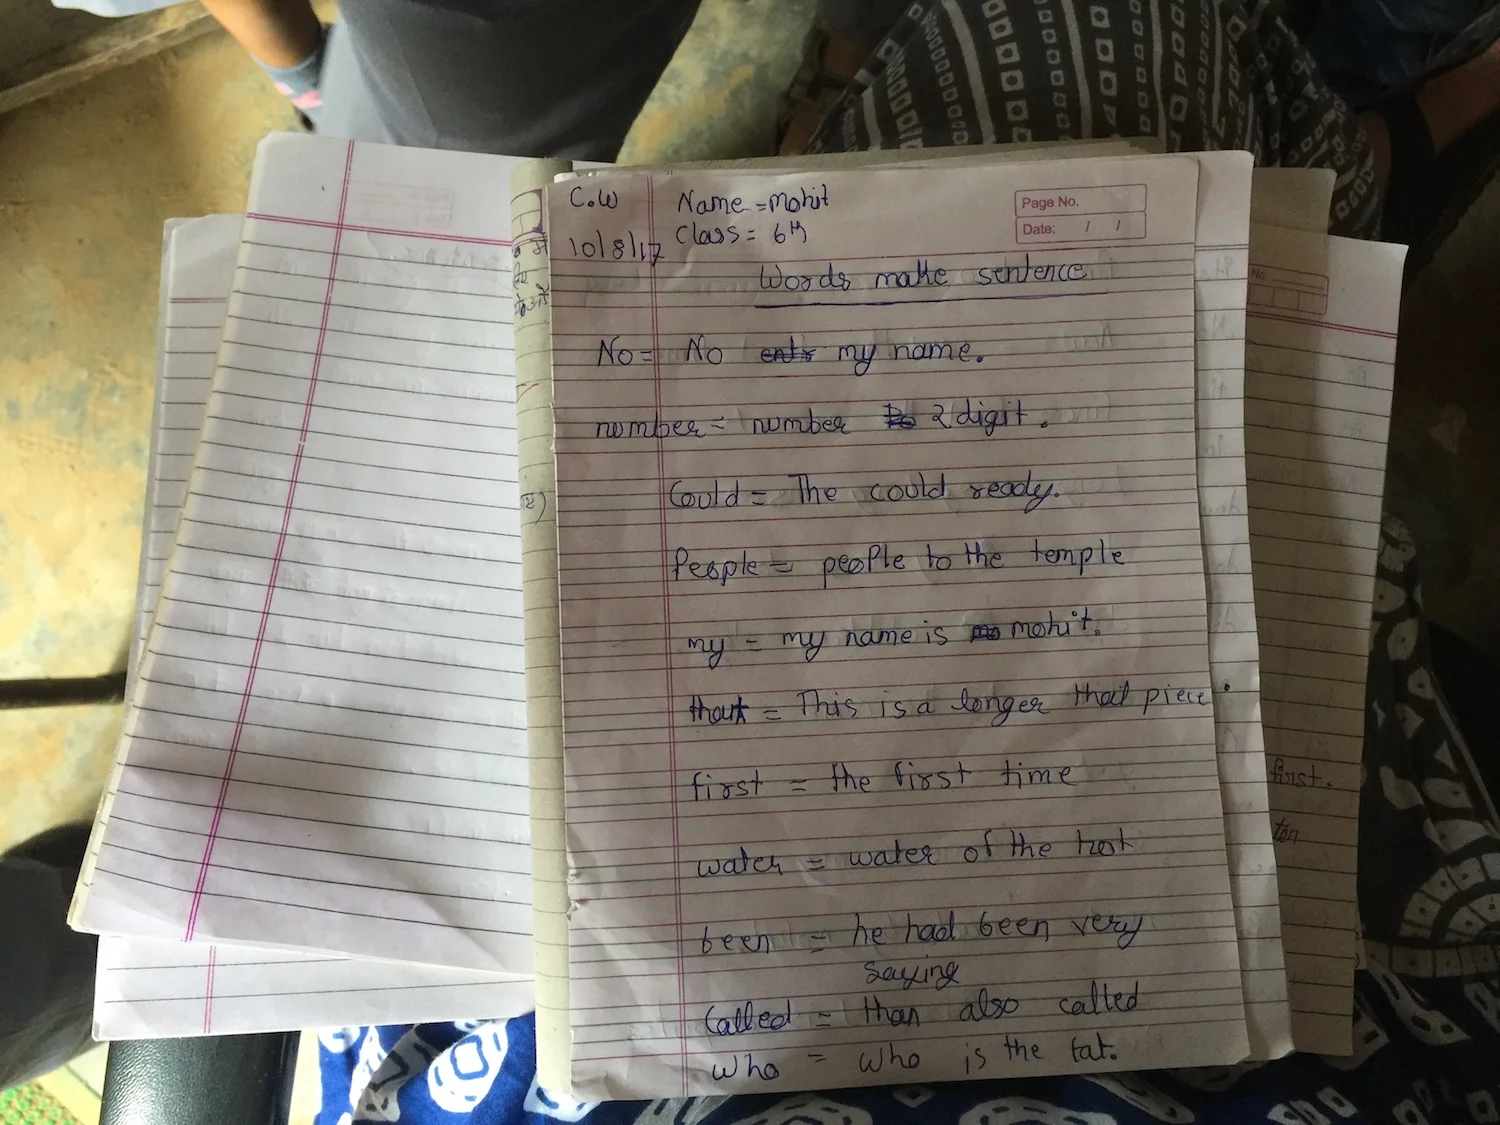 C.W Name = Mohit
10/8/17 Class = 6th
Page No.
Date: / /
Words make sentence
No = No my name.
number = number 2 digit.
Could = The could ready.
People = people to the temple
my = my name is mohit.
that = This is a longer that piece.
first = the first time
water = water of the hot
been = he had been very
saying
Called = than also called
Who = who is the tat.
first.
ten